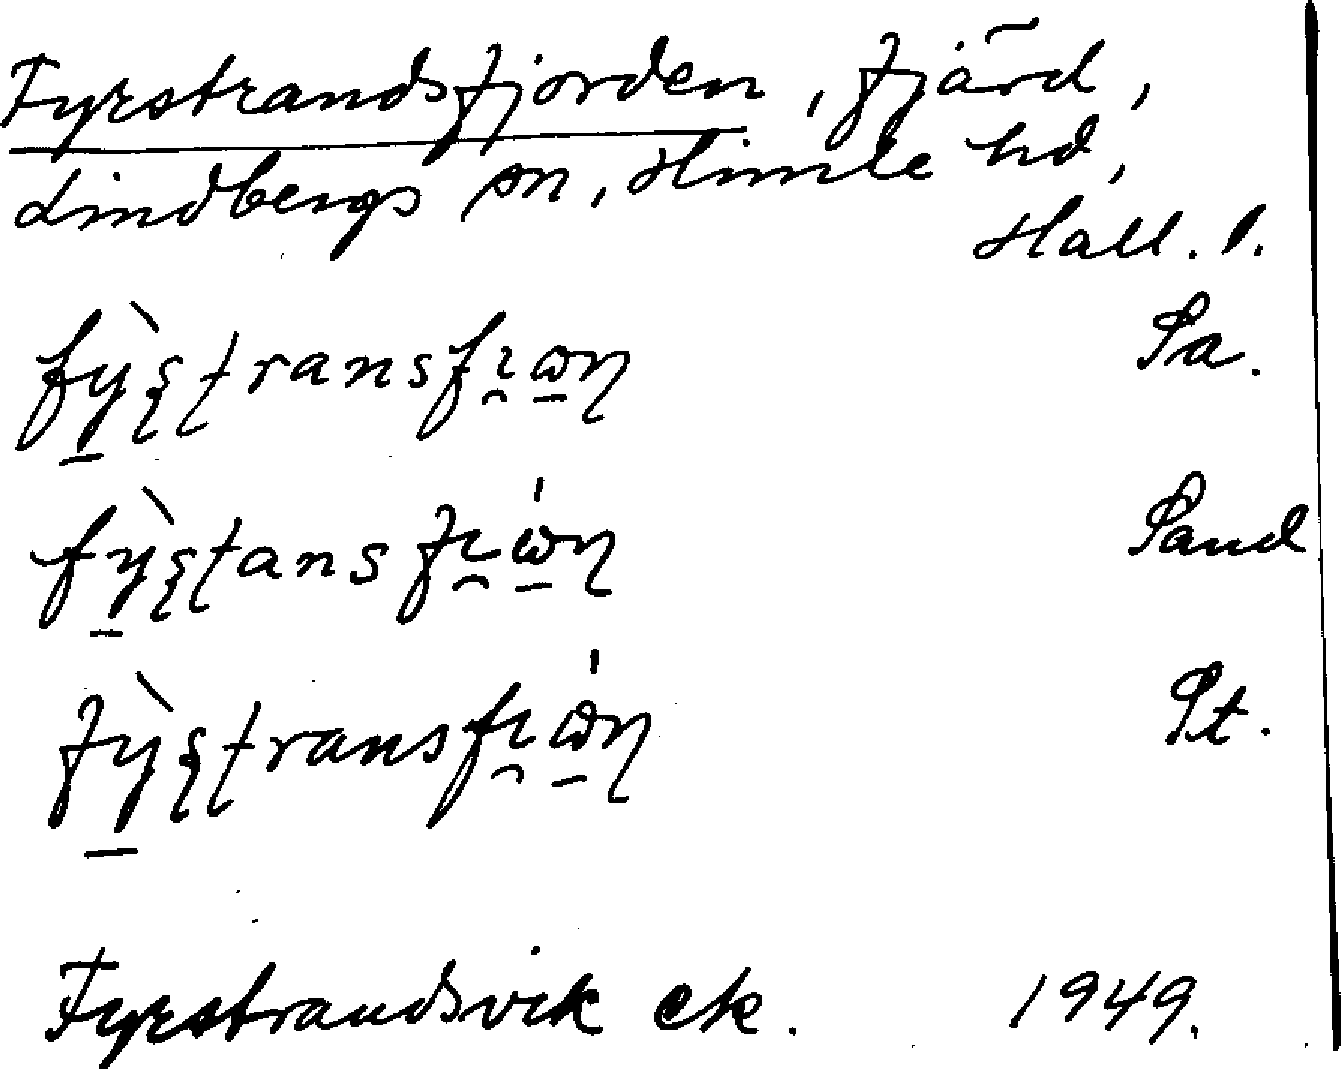 Fyrstrandsfjorden, fjärd,
Lindbergs sn, Himle hd,
Hall. l.
fỳ̠ʂʈransfı̯ω̠ɳ Sa.
fỳ̠ʂʈansfı̯ώ̠ɳ Sand
fỳ̠ʂʈransfı̯ώ̠ɳ St.
Fyrstrandsvik ek. 1949.